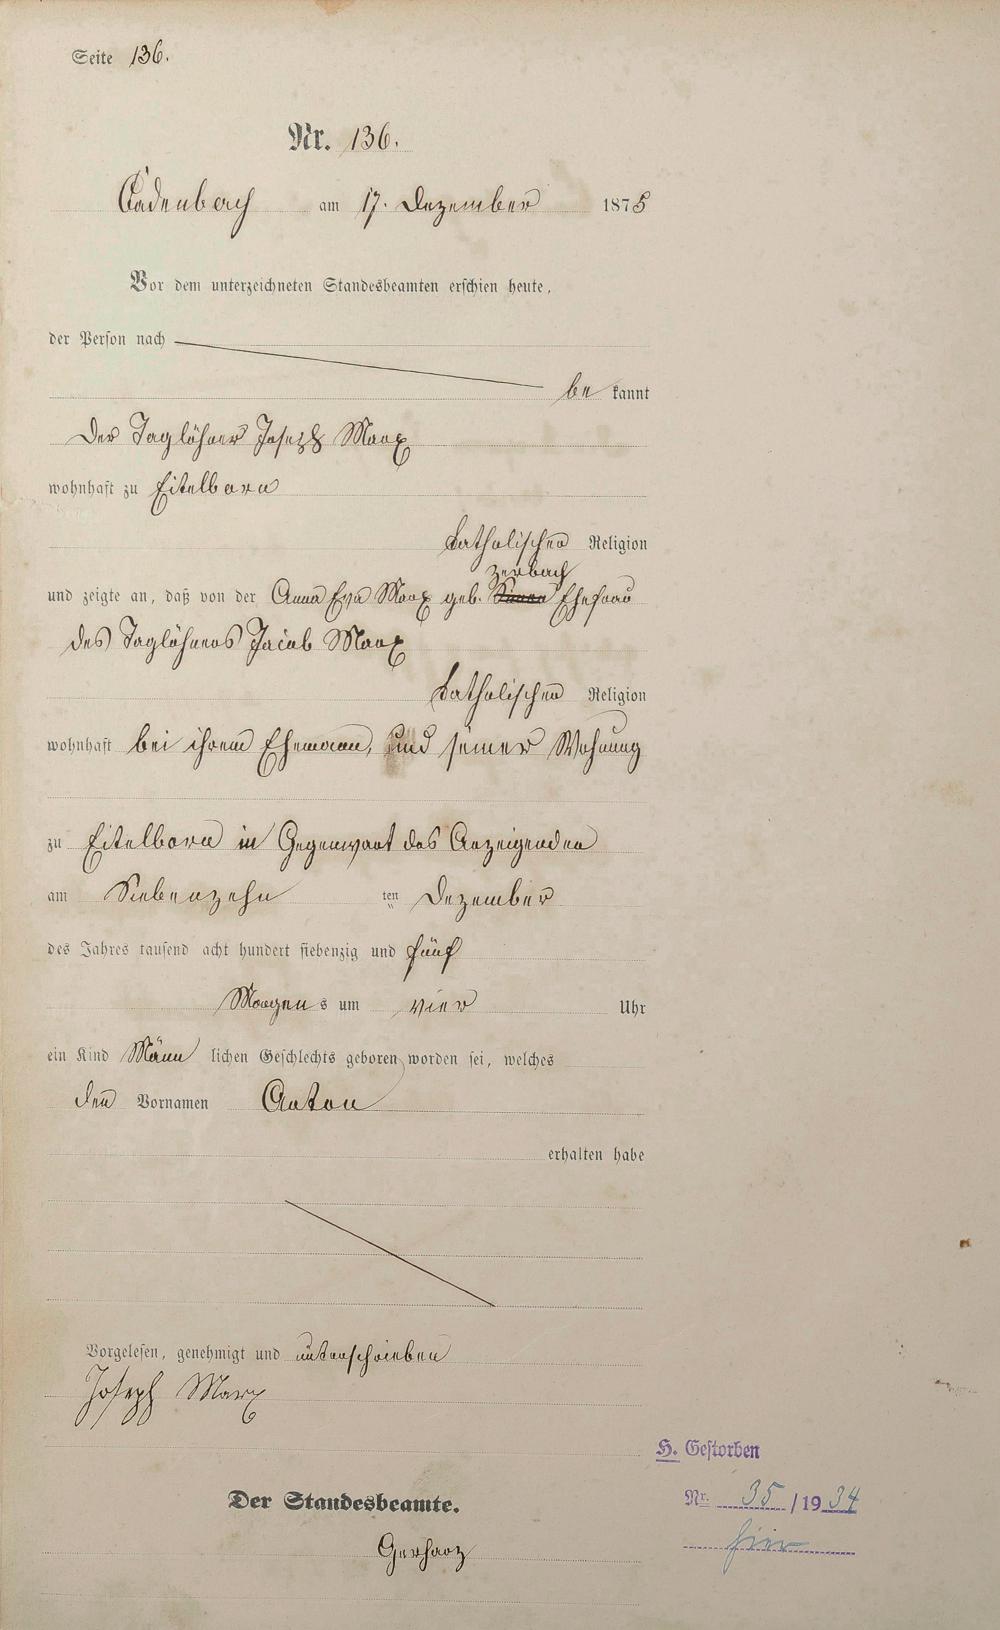 Seite 136.
Nr. 136.
Cadenbach am 17. Dezember 1875
Vor dem unterzeichneten Standesbeamten erschien heute,
der Person nach
be kannt
der Taglöhner Joseph Marx
wohnhaft zu Eitelborn
katholischer Religion
Zerbach
und zeigte an, daß von der Anna Eva Marx geb. Ehefrau
des Taglöhners Jacob Marx
katholischen Religion
wohnhaft bei ihrem Ehemann, und seiner Wohnung
zu Eitelborn in Gegenwart des Anzeigenden
am Siebenzehn ten Dezember
des Jahres tausend acht hundert siebenzig und fünf
Morgen s um vier Uhr
ein Kind Männ lichen Geschlechts geboren worden sei, welches
den Vornamen Anton
erhalten habe
Vorgelesen, genehmigt und unterschrieben
Joseph Marx
H. Gestorben
Der Standesbeamte.
Nr. 35 / 1934
hier
Gerharz